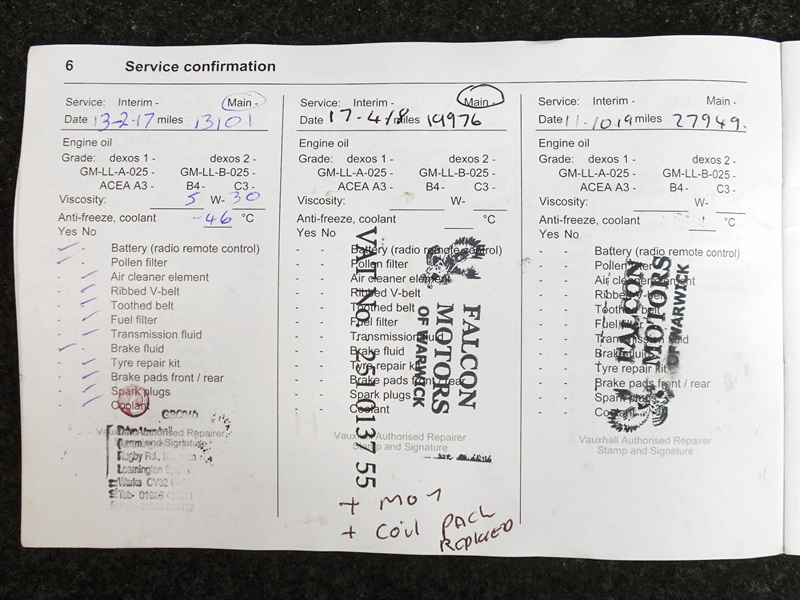 6 Service confirmation
Service: Interim - Main -
Date 13-2-17 miles 13101
Engine oil
Grade: dexos 1 - dexos 2 -
GM-LL-A-025 - GM-LL-B-025 -
ACEA A3 - B4 - C3 -
Viscosity: 5 W- 30
Anti-freeze, coolant -46 °C
Yes No
- - Battery (radio remote control)
- - Pollen filter
- - Air cleaner element
- - Ribbed V-belt
- - Toothed belt
- - Fuel filter
- - Transmission fluid
- - Brake fluid
- - Tyre repair kit
- - Brake pads front / rear
- - Spark plugs
- - Coolant
Vauxhall Authorised Repairer
Stamp and Signature
Rugby Rd.,
Leamington
Warks CV32
Tel:- 01926
Service: Interim - Main -
Date 17-4-18 miles 19976
Engine oil
Grade: dexos 1 - dexos 2 -
GM-LL-A-025 - GM-LL-B-025 -
ACEA A3 - B4 - C3 -
Viscosity: W-
Anti-freeze, coolant °C
Yes No
- - Battery (radio remote control)
- - Pollen filter
- - Air cleaner element
- - Ribbed V-belt
- - Toothed belt
- - Fuel filter
- - Transmission fluid
- - Brake fluid
- - Tyre repair kit
- - Brake pads front / rear
- - Spark plugs
- - Coolant
Vauxhall Authorised Repairer
Stamp and Signature
FALCON
MOTORS
OF WARWICK
VAT No. 225 0137 55
+ MOT
+ Coil PACK
REPLACED
Service: Interim - Main -
Date 11-10.19 miles 27949.
Engine oil
Grade: dexos 1 - dexos 2 -
GM-LL-A-025 - GM-LL-B-025 -
ACEA A3 - B4 - C3 -
Viscosity: W-
Anti-freeze, coolant °C
Yes No
- - Battery (radio remote control)
- - Pollen filter
- - Air cleaner element
- - Ribbed V-belt
- - Toothed belt
- - Fuel filter
- - Transmission fluid
- - Brake fluid
- - Tyre repair kit
- - Brake pads front / rear
- - Spark plugs
- - Coolant
Vauxhall Authorised Repairer
Stamp and Signature
FALCON
MOTORS
OF WARWICK